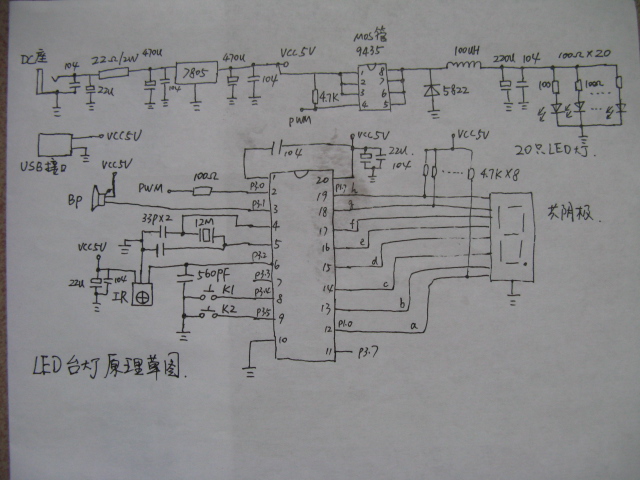 DC座
104
22u
22Ω/2W
470u
104
7805
470u
104
VCC5V
4.7K
PWM
MOS管
9435
1 8
2 7
3 6
4 5
5822
100UH
220u
104
100Ω×20
100
100Ω
20只LED灯.
USB接口
VCC5V
VCC5V
Bp
PWM
100Ω
104
VCC5V
22u
104
VCC5V
4.7K×8
共阴极.
33P×2
12M
VCC5V
22u
104
IR
560PF
K1
K2
1
P3.0 2
P3.1 3
4
5
P3.2 6
P3.3 7
P3.4 8
P3.5 9
10
20
P1.7 19 h
18 g
17 f
16 e
15 d
14 c
13 b
12 P1.0 a
11 P3.7
LED台灯原理草图.